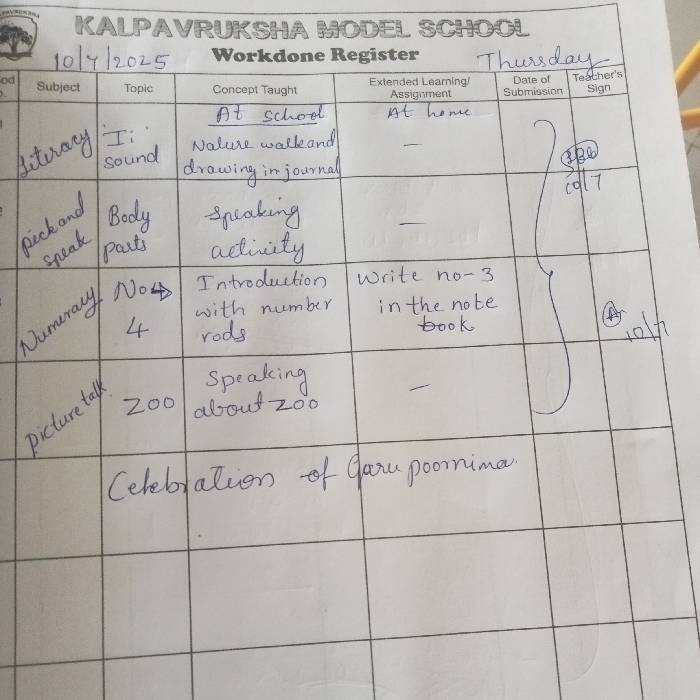 KALPAVRUKSHA MODEL SCHOOL
Workdone Register
10/7/2025
Thursday
Subject Topic Concept Taught Extended Learning/ Assignment Date of Submission Teacher's Sign
At school At home
Literacy Ii sound Nature walk and drawing in journal —
10/7
Pick and speak Body parts Speaking activity —
Numeracy No→ 4 Introduction with number rods Write no-3 in the note book
10/7
Picture talk. ZOO Speaking about ZOO —
Celebration of Guru poornima.